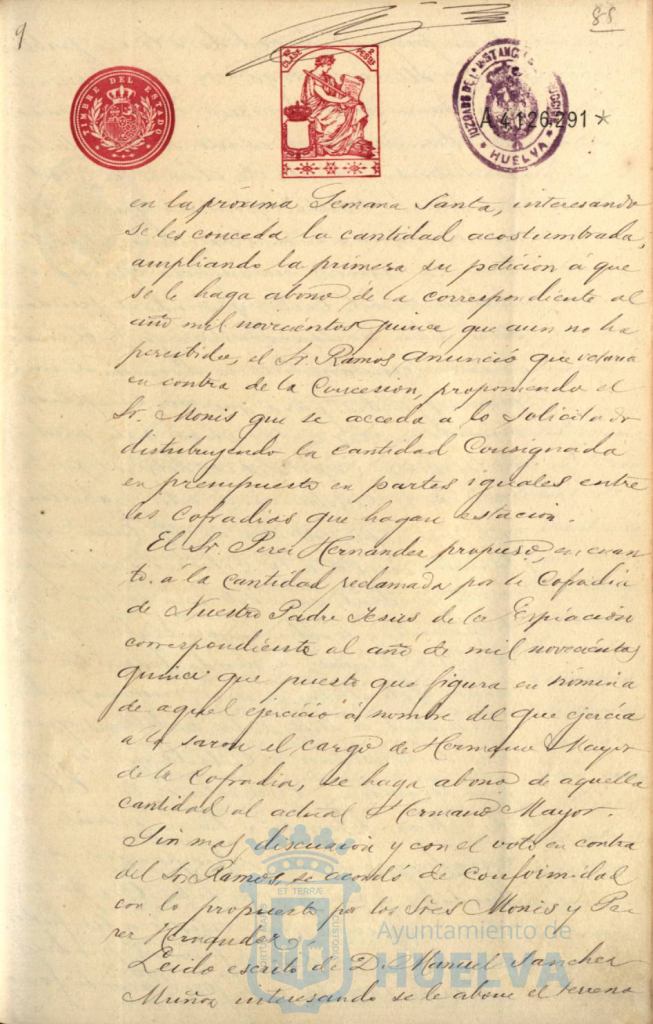 9
85
TIMBRE DEL ESTADO
CLASE
PESETAS
JUZGADO DE 1ª INSTANCIA
HUELVA
A 4.126.291 *
en la próxima Semana Santa, interesando
se les conceda la cantidad acostumbrada,
ampliando la primera su peticion á que
se le haga abono de la correspondiente al
año mil novecientos quince que aun no ha
percibido, el Sr. Ramos anunció que votaria
en contra de la Concesion, proponiendo el
Sr. Monis que se acceda a lo solicitado
distribuyendo la cantidad Consignada
en presupuesto en partes iguales entre
las Cofradias que hagan estacion.
El Sr. Perez Hernandez propuso, en cuan
to á la cantidad reclamada por la Cofradia
de Nuestro Padre Jesus de la Expiación
correspondiente al año de mil novecientos
quince que puesto que figura en nómina
de aquel ejercicio á nombre del que ejercia
a la sazon el cargo de Hermano Mayor
de la Cofradia, se haga abono de aquella
cantidad al actual Hermano Mayor.
Sin mas discusion y con el voto en contra
del Sr. Ramos, se acordó de conformidad
con lo propuesto por los Sres Monis y Pe-
rez Hernandez
Leido escrito de D. Manuel Sanchez
Muñoz interesando se le abone el terreno
ET TERRÆ
CUSTODIA
Ayuntamiento de
HUELVA